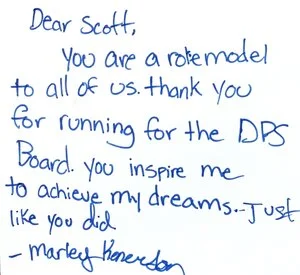 Dear Scott,
you are a rolemodel
to all of us. thank you
for running for the DPS
Board. you inspire me
to achieve my dreams..Just
like you did
- Marley